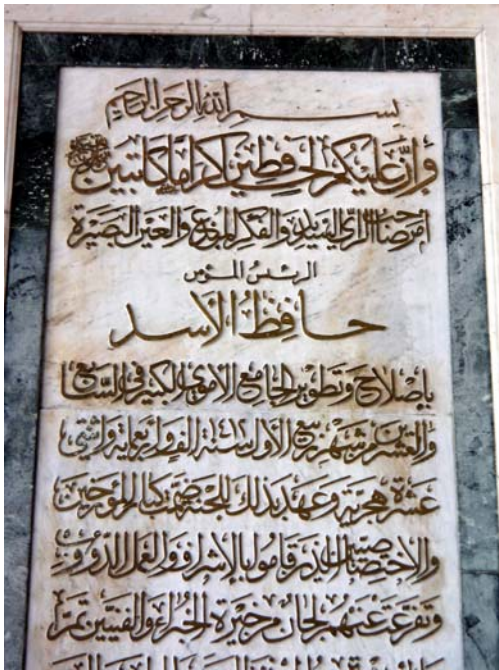 بسم الله الرحمن الرحيم
وإن عليكم لحافظين كراما كاتبين
أمر صاحب الرأي السديد والفكر المبدع والعين البصيرة
الرئيس المؤمن
حافظ الأسد
بإصلاح وتطوير الجامع الأموي الكبير في السابع
والعشرين من شهر ربيع الأول سنة ١٤١٢ ألف وأربعماية واثنتي
عشرة هجرية وعهد بذلك للجنة ضمت كبار المؤرخين
والاختصاصيين الذين قاموا بالإشراف والعمل الدؤوب
وتفرعت عنهم لجان من خيرة الخبراء والفنيين